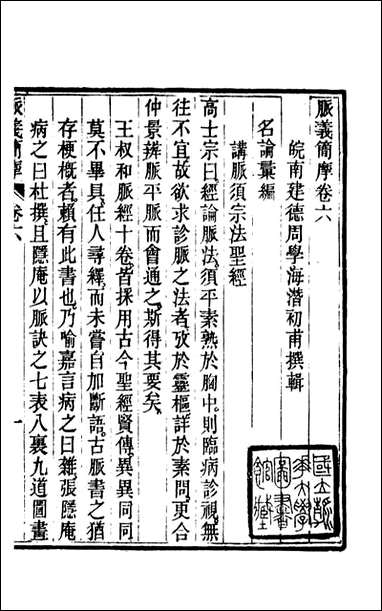 脈義簡摩卷六
皖南建德周學海澂之甫撰輯
名論彙編
講脈須宗法聖經
高士宗曰經論脈法須平素熟於胸中則臨病診視無
往不宜故欲求診脈之法者攷於靈樞詳於素問更合
仲景辨脈平脈而會通之斯得其要矣
王叔和脈經十卷皆採用古今聖經賢傳異異同同
莫不畢具任人尋釋而未嘗自加斷語古脈書之猶
存梗槪者賴有此書也乃喻嘉言病之曰雜張隱庵
病之曰杜撰且隱庵以脈訣之七表八裏九道圖畫
脈義簡摩
卷六
一